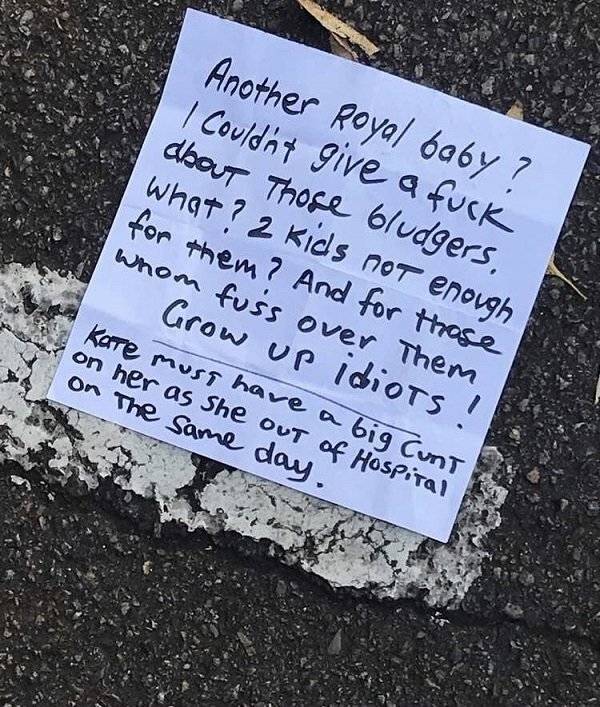 Another Royal baby?
I Couldn't give a fuck
about Those bludgers.
what? 2 Kids not enough
for them? And for those
whom fuss over Them
Grow up idiots!
Kate must have a big Cunt
on her as she out of Hospital
on The Same day.